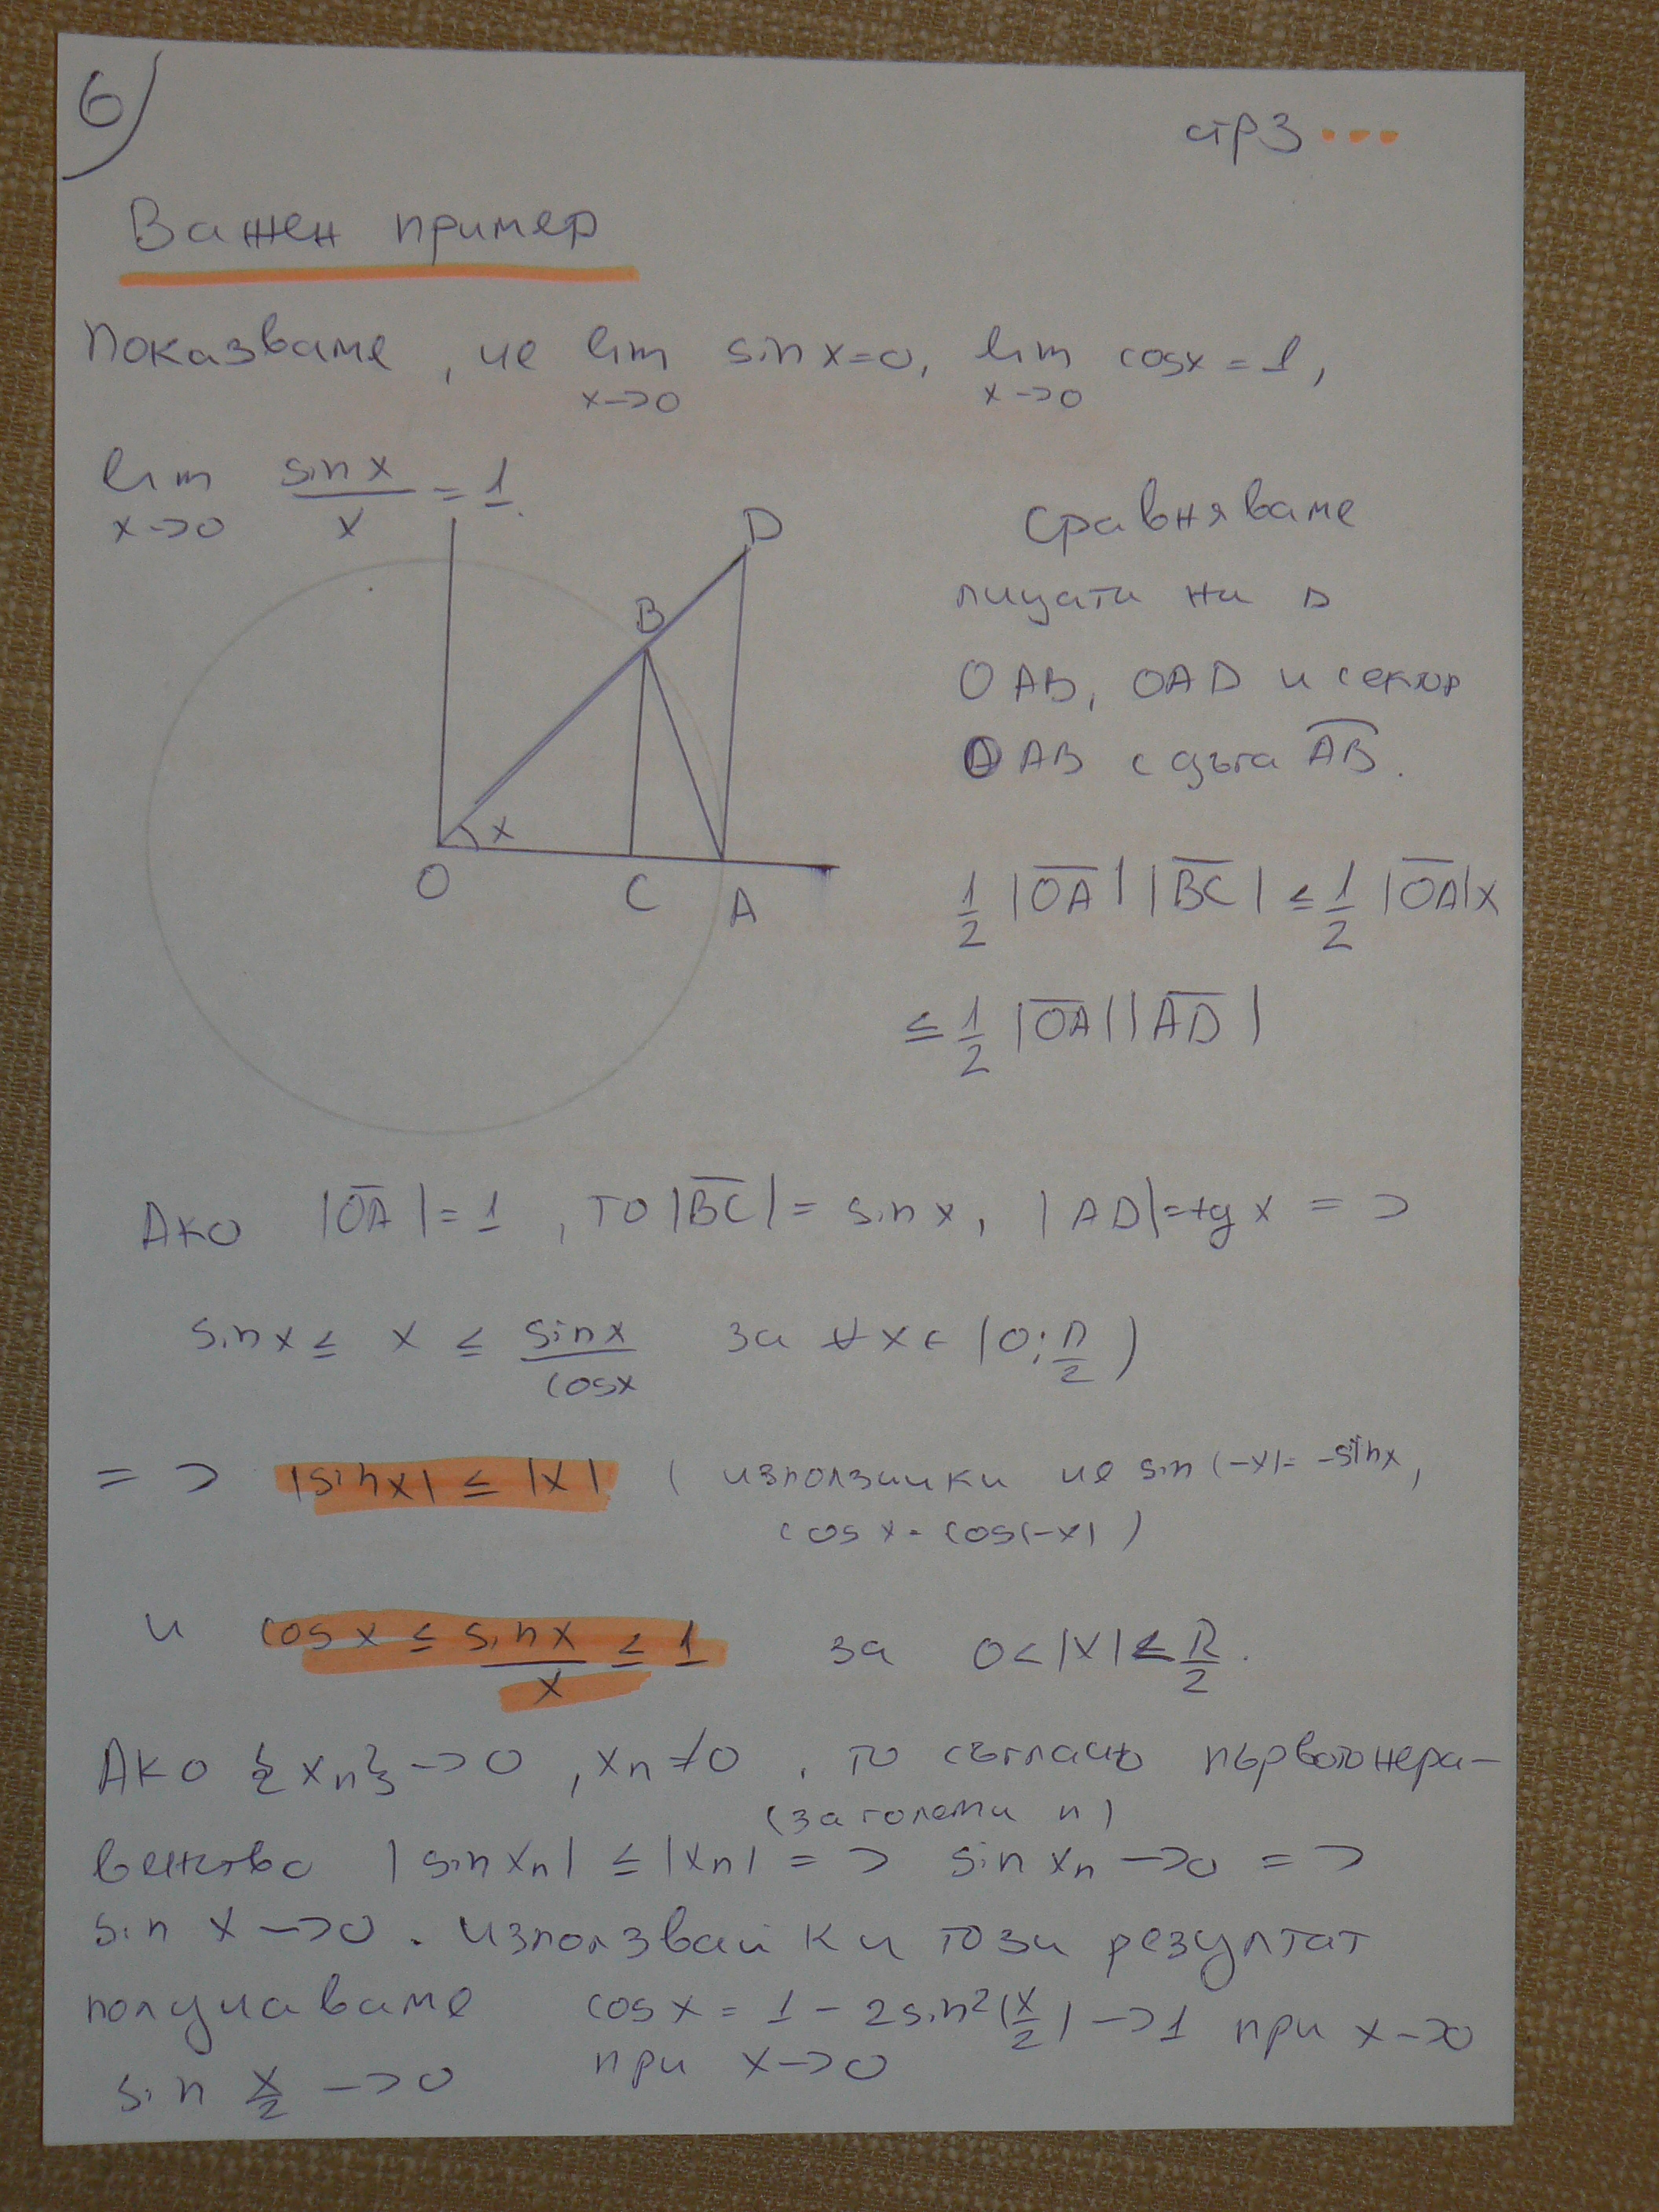 6)
стр 3 ...
Важен пример
Показваме, че lim sin x = 0, lim cos x = 1,
x->0 x->0
lim sin x / x = 1.
x->0
Сравняваме
лицата на Δ
OAB, OAD и сектор
OAB с дъга AB.
D
B
x
O C A
1/2 |OA| |BC| ≤ 1/2 |OA| x
≤ 1/2 |OA| |AD|
Ако |OA| = 1, то |BC| = sin x, |AD| = tg x =>
sin x ≤ x ≤ sin x / cos x за ∀ x ∈ (0; π/2)
=> |sin x| ≤ |x| ( използвайки че sin(-x) = -sin x,
cos x = cos(-x) )
и cos x ≤ sin x / x ≤ 1 за 0 < |x| < π/2.
Ако {xn} -> 0, xn ≠ 0, то съгласно първото нера-
(за големи n)
венство |sin xn| ≤ |xn| => sin xn -> 0 =>
sin x -> 0. Използвайки този резултат
получаваме cos x = 1 - 2 sin²(x/2) -> 1 при x -> 0
sin x/2 -> 0 при x -> 0